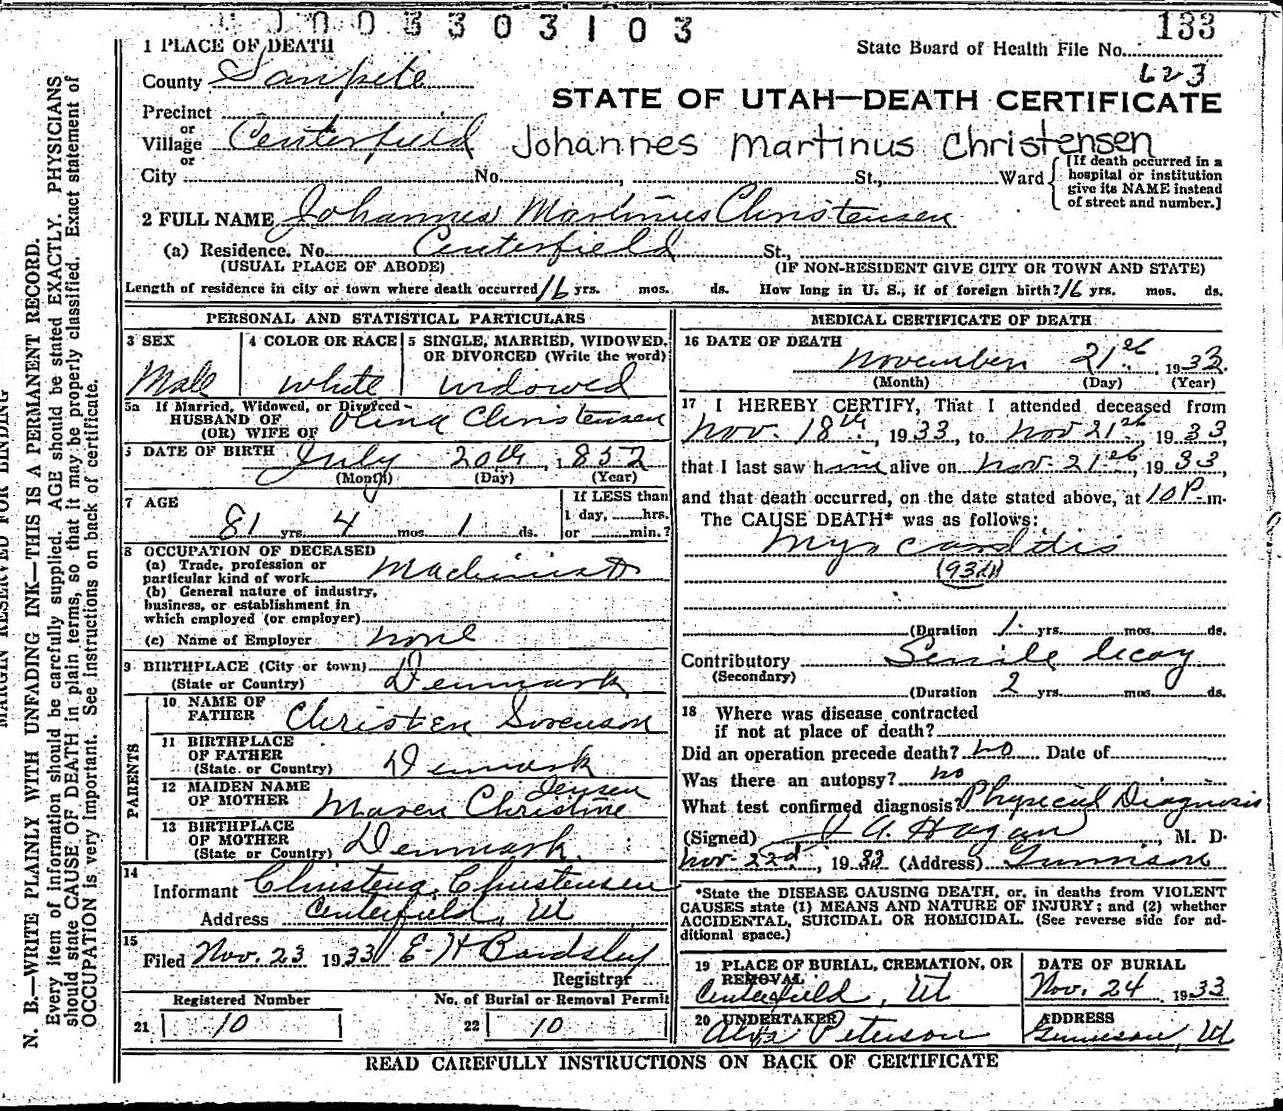 0003303103
133
State Board of Health File No.
623
1 PLACE OF DEATH
County Sanpete
STATE OF UTAH—DEATH CERTIFICATE
Precinct
or
Village Centerfield
Johannes Martinus Christensen
or
City No. , St., Ward
[If death occurred in a
hospital or institution
give its NAME instead
of street and number.]
2 FULL NAME Johannes Martinus Christensen
(a) Residence. No. Centerfield St.,
(USUAL PLACE OF ABODE) (IF NON-RESIDENT GIVE CITY OR TOWN AND STATE)
Length of residence in city or town where death occurred 16 yrs. mos. ds. How long in U. S., if of foreign birth? 16 yrs. mos. ds.
PERSONAL AND STATISTICAL PARTICULARS
3 SEX
Male
4 COLOR OR RACE
white
5 SINGLE, MARRIED, WIDOWED,
OR DIVORCED (Write the word)
widowed
5a If Married, Widowed, or Divorced
HUSBAND OF
(OR) WIFE OF
Christensen
DATE OF BIRTH July 20th, 1852
(Month) (Day) (Year)
7 AGE
81 yrs. 4 mos. 1 ds.
If LESS than
1 day, hrs.
or min.?
8 OCCUPATION OF DECEASED
(a) Trade, profession or
particular kind of work Machinist
(b) General nature of industry,
business, or establishment in
which employed (or employer)
(c) Name of Employer none
9 BIRTHPLACE (City or town)
(State or Country) Denmark
PARENTS
10 NAME OF
FATHER Christen Sorenson
11 BIRTHPLACE
OF FATHER
(State or Country) Denmark
12 MAIDEN NAME
OF MOTHER Maren Christine Jensen
13 BIRTHPLACE
OF MOTHER
(State or Country) Denmark.
14
Informant Christena Christensen
Address Centerfield, Ut
15
Filed Nov. 23 1933 E. H. Bardsley
Registrar
Registered Number
21 10
No. of Burial or Removal Permit
22 10
MEDICAL CERTIFICATE OF DEATH
16 DATE OF DEATH
November 21st, 1933
(Month) (Day) (Year)
17 I HEREBY CERTIFY, That I attended deceased from
Nov. 18th, 1933, to Nov 21st, 1933,
that I last saw him alive on Nov. 21st, 1933,
and that death occurred, on the date stated above, at 10 P. m.
The CAUSE DEATH* was as follows:
Myocarditis
(Duration 1 yrs. mos. ds.
Contributory Senile decay
(Secondary)
(Duration 2 yrs. mos. ds.
18 Where was disease contracted
if not at place of death?
Did an operation precede death? no Date of
Was there an autopsy? no
What test confirmed diagnosis? Physical Diagnosis
(Signed) J A. Hagan, M. D.
Nov. 22d, 1933 (Address) Gunnison
*State the DISEASE CAUSING DEATH, or, in deaths from VIOLENT
CAUSES state (1) MEANS AND NATURE OF INJURY; and (2) whether
ACCIDENTAL, SUICIDAL OR HOMICIDAL. (See reverse side for ad-
ditional space.)
19 PLACE OF BURIAL, CREMATION, OR
REMOVAL
Centerfield, Ut
DATE OF BURIAL
Nov. 24, 1933
20 UNDERTAKER
Peterson
ADDRESS
Gunnison, Ut
READ CAREFULLY INSTRUCTIONS ON BACK OF CERTIFICATE
MARGIN RESERVED FOR BINDING
N. B.—WRITE PLAINLY WITH UNFADING INK—THIS IS A PERMANENT RECORD.
Every item of information should be carefully supplied. AGE should be stated EXACTLY. PHYSICIANS
should state CAUSE OF DEATH in plain terms, so that it may be properly classified. Exact statement of
OCCUPATION is very important. See instructions on back of certificate.